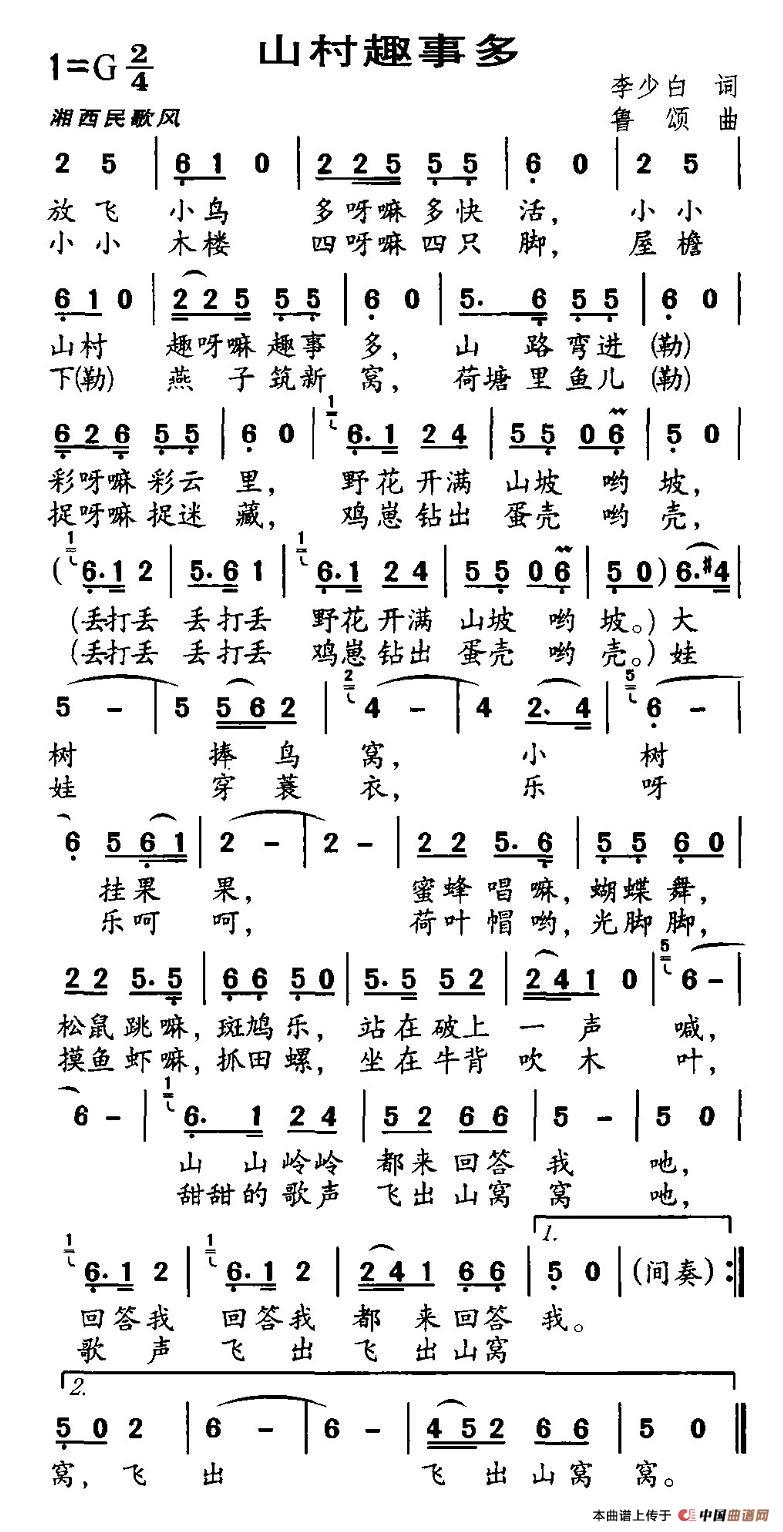 山村趣事多
1=G 2/4
李少白 词
湘西民歌风
鲁颂 曲
2 5 | 6 1 0 | 2 2 2 5 5 5 | 6 0 | 2 5 |
放飞 小鸟 多呀嘛多快 活， 小小
小小 木楼 四呀嘛四只 脚， 屋檐
6 1 0 | 2 2 5 5 5 | 6 0 | 5. 6 5 5 | 6 0 |
山村 趣呀嘛趣事 多， 山路弯进 (勒)
下(勒) 燕子筑新 窝， 荷塘里鱼儿 (勒)
6 2 6 5 5 | 6 0 | 1 6. 1 2 4 | 5 5 0 6 | 5 0 |
彩呀嘛彩云 里， 野花开满 山坡 哟 坡，
捉呀嘛捉迷 藏， 鸡崽钻出 蛋壳 哟 壳，
( 1 6. 1 2 | 5. 6 1 | 1 6. 1 2 4 | 5 5 0 6 | 5 0 ) 6. #4 |
(丢打丢 丢打丢 野花开满 山坡 哟 坡。) 大
(丢打丢 丢打丢 鸡崽钻出 蛋壳 哟 壳。) 娃
5 - | 5 5 6 2 | 2 4 - | 4 2. 4 | 5 6 - |
树 捧鸟 窝， 小 树
娃 穿蓑 衣， 乐 呀
6 5 6 1 | 2 - | 2 - | 2 2 5. 6 | 5 5 6 0 |
挂果 果， 蜜蜂唱嘛， 蝴蝶舞，
乐呵 呵， 荷叶帽哟， 光脚脚，
2 2 5. 5 | 6 6 5 0 | 5. 5 5 2 | 2 4 1 0 | 5 6 - |
松鼠跳嘛， 斑鸠乐， 站在破上 一声 喊，
摸鱼虾嘛， 抓田螺， 坐在牛背 吹木 叶，
6 - | 1 6. 1 2 4 | 5 2 6 6 | 5 - | 5 0 |
山山岭岭 都来回答 我 吔，
甜甜的歌声 飞出山窝 窝 吔，
1.
1 6. 1 2 | 1 6. 1 2 | 2 4 1 6 6 | 5 0 | (间奏) :||
回答我 回答我 都来回答 我。
歌声 飞出 飞出山窝
2.
5 0 2 | 6 - | 6 - | 4 5 2 6 6 | 5 0 ||
窝， 飞 出 飞出山窝 窝。
本曲谱上传于 中国曲谱网